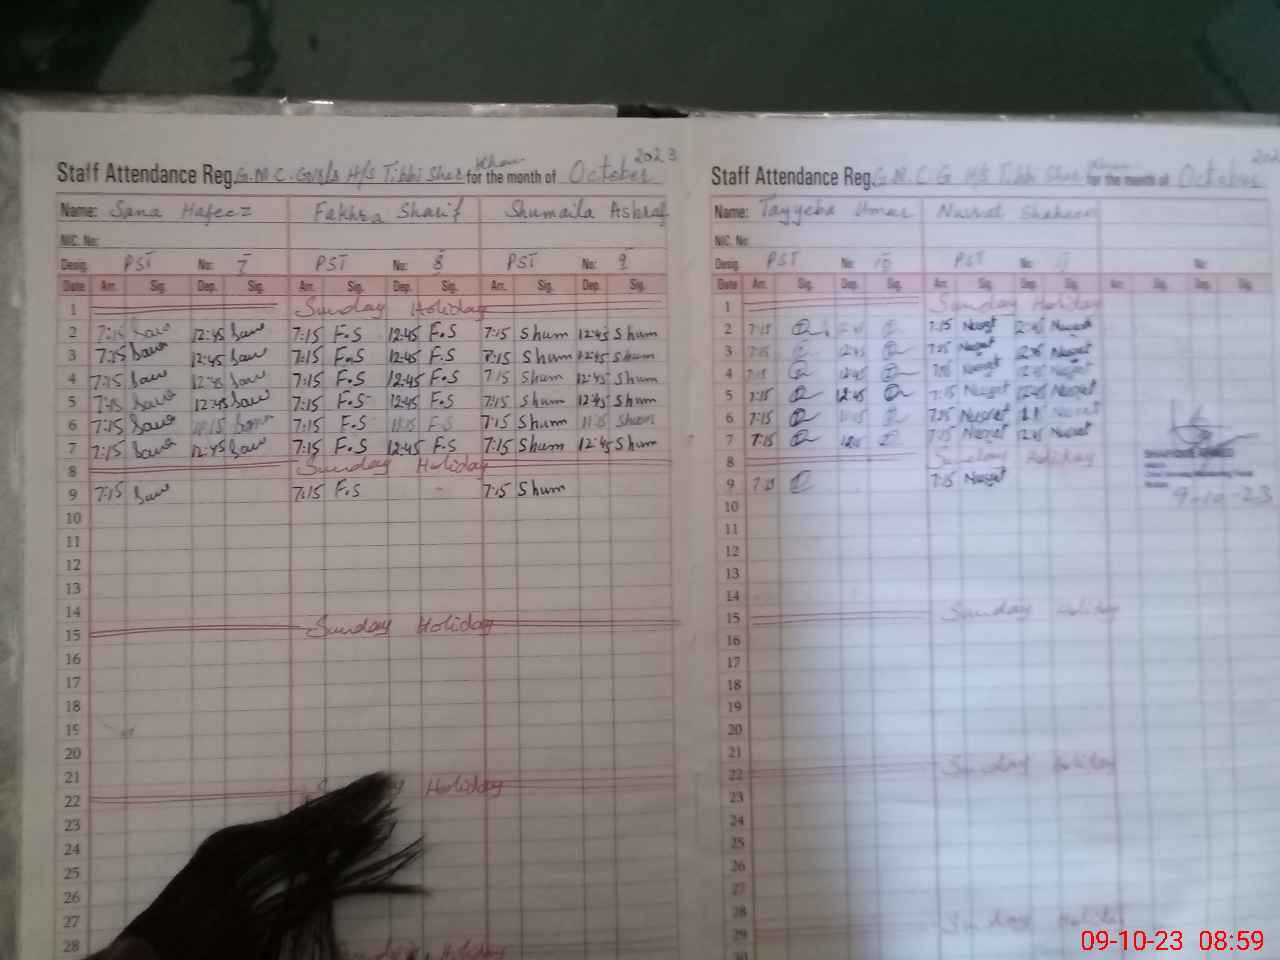 Staff Attendance Reg. G.M.C. Girls H/S Tibbi Sher Khan for the month of October 2023
Name: Sana Hafeez Fakhra Sharif Shumaila Ashraf
NIC. No:
Desig. PST No: 7 PST No: 8 PST No: 9
Date Arr. Sig. Dep. Sig. Arr. Sig. Dep. Sig. Arr. Sig. Dep. Sig.
1 Sunday Holiday
2 7:15 12:45 7:15 F.S 12:45 F.S 7:15 Shum 12:45 Shum
3 7:15 12:45 7:15 F.S 12:45 F.S 7:15 Shum 12:45 Shum
4 7:15 12:45 7:15 F.S 12:45 F.S 7:15 Shum 12:45 Shum
5 12:45 7:15 F.S 12:45 F.S 7:15 Shum 12:45 Shum
6 7:15 11:15 7:15 F.S 11:15 F.S 7:15 Shum 11:15 Shum
7 7:15 12:45 7:15 F.S 12:45 F.S 7:15 Shum 12:45 Shum
8 Sunday Holiday
9 7:15 7:15 F.S 7:15 Shum
10
11
12
13
14
15 Sunday Holiday
16
17
18
19
20
21
22 Sunday Holiday
23
24
25
26
27
28
Holiday
Staff Attendance Reg. G.M.C.G H/S Tibbi Sher Khan for the month of October 202
Name: Tayyeba Umar Nusrat Shaheen
NIC. No:
Desig. PST No: 10 PST No: 11 No:
Date Arr. Sig. Dep. Sig. Arr. Sig. Dep. Sig. Arr. Sig. Dep. Sig.
1 Sunday Holiday
2 7:15 12:45 7:15 Nusrat 12:45 Nusrat
3 7:15 12:45 7:15 Nusrat 12:45 Nusrat
4 7:15 12:45 7:15 Nusrat 12:45 Nusrat
5 7:15 12:45 7:15 Nusrat 12:45 Nusrat
6 7:15 11:15 7:15 Nusrat Nusrat
7 7:15 7:15 Nusrat 12:45 Nusrat
8 Sunday Holiday
9 7:15 7:15 Nusrat
9-10-23
10
11
12
13
14
15 Sunday Holiday
16
17
18
19
20
21
22 Sunday Holiday
23
24
25
26
27
28 Sunday Holiday
29
30
09-10-23 08:59